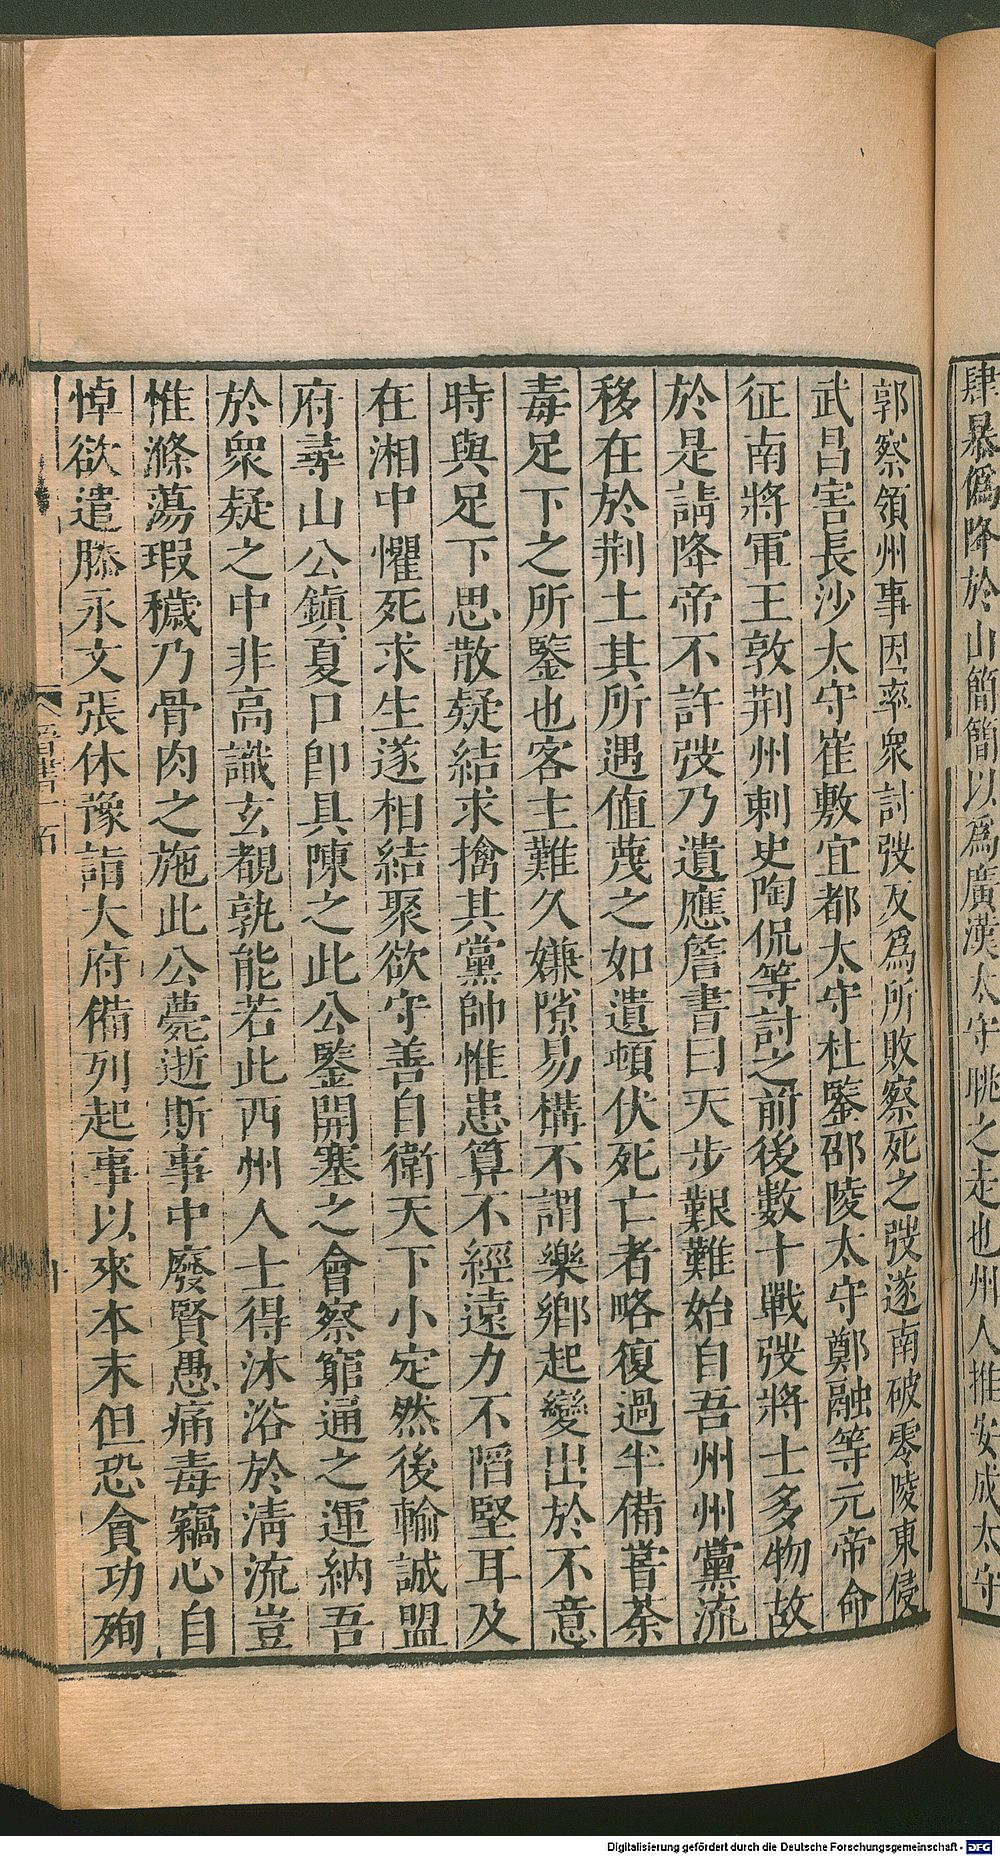 肆暴僞降於山簡簡以爲廣漢太守眺之走也州人推安成太守
郭察領州事因率衆討弢反爲所敗察死之弢遂南破零陵東侵
武昌害長沙太守崔敷宜都太守杜鑒邵陵太守鄭融等元帝命
征南將軍王敦荆州刺史陶侃等討之前後數十戰弢將士多物故
於是請降帝不許弢乃遺應詹書曰天步艱難始自吾州州黨流
移在於荆土其所遇值蔑之如遺頓伏死亡者略復過半備嘗荼
毒足下之所鑒也客主難久嫌隙易構不謂樂鄉起變出於不意
時與足下思散疑結求擒其黨帥惟患算不經遠力不陷堅耳及
在湘中懼死求生遂相結聚欲守善自衛天下小定然後輸誠盟
府尋山公鎮夏口卽具陳之此公鑒開塞之會察窮通之運納吾
於衆疑之中非高識玄覩孰能若此西州人士得沐浴於清流豈
惟滌蕩瑕穢乃骨肉之施此公薨逝斯事中廢賢愚痛毒竊心自
悼欲遣滕永文張休豫詣大府備列起事以來本末但恐貪功殉
Digitalisierung gefördert durch die Deutsche Forschungsgemeinschaft - DFG